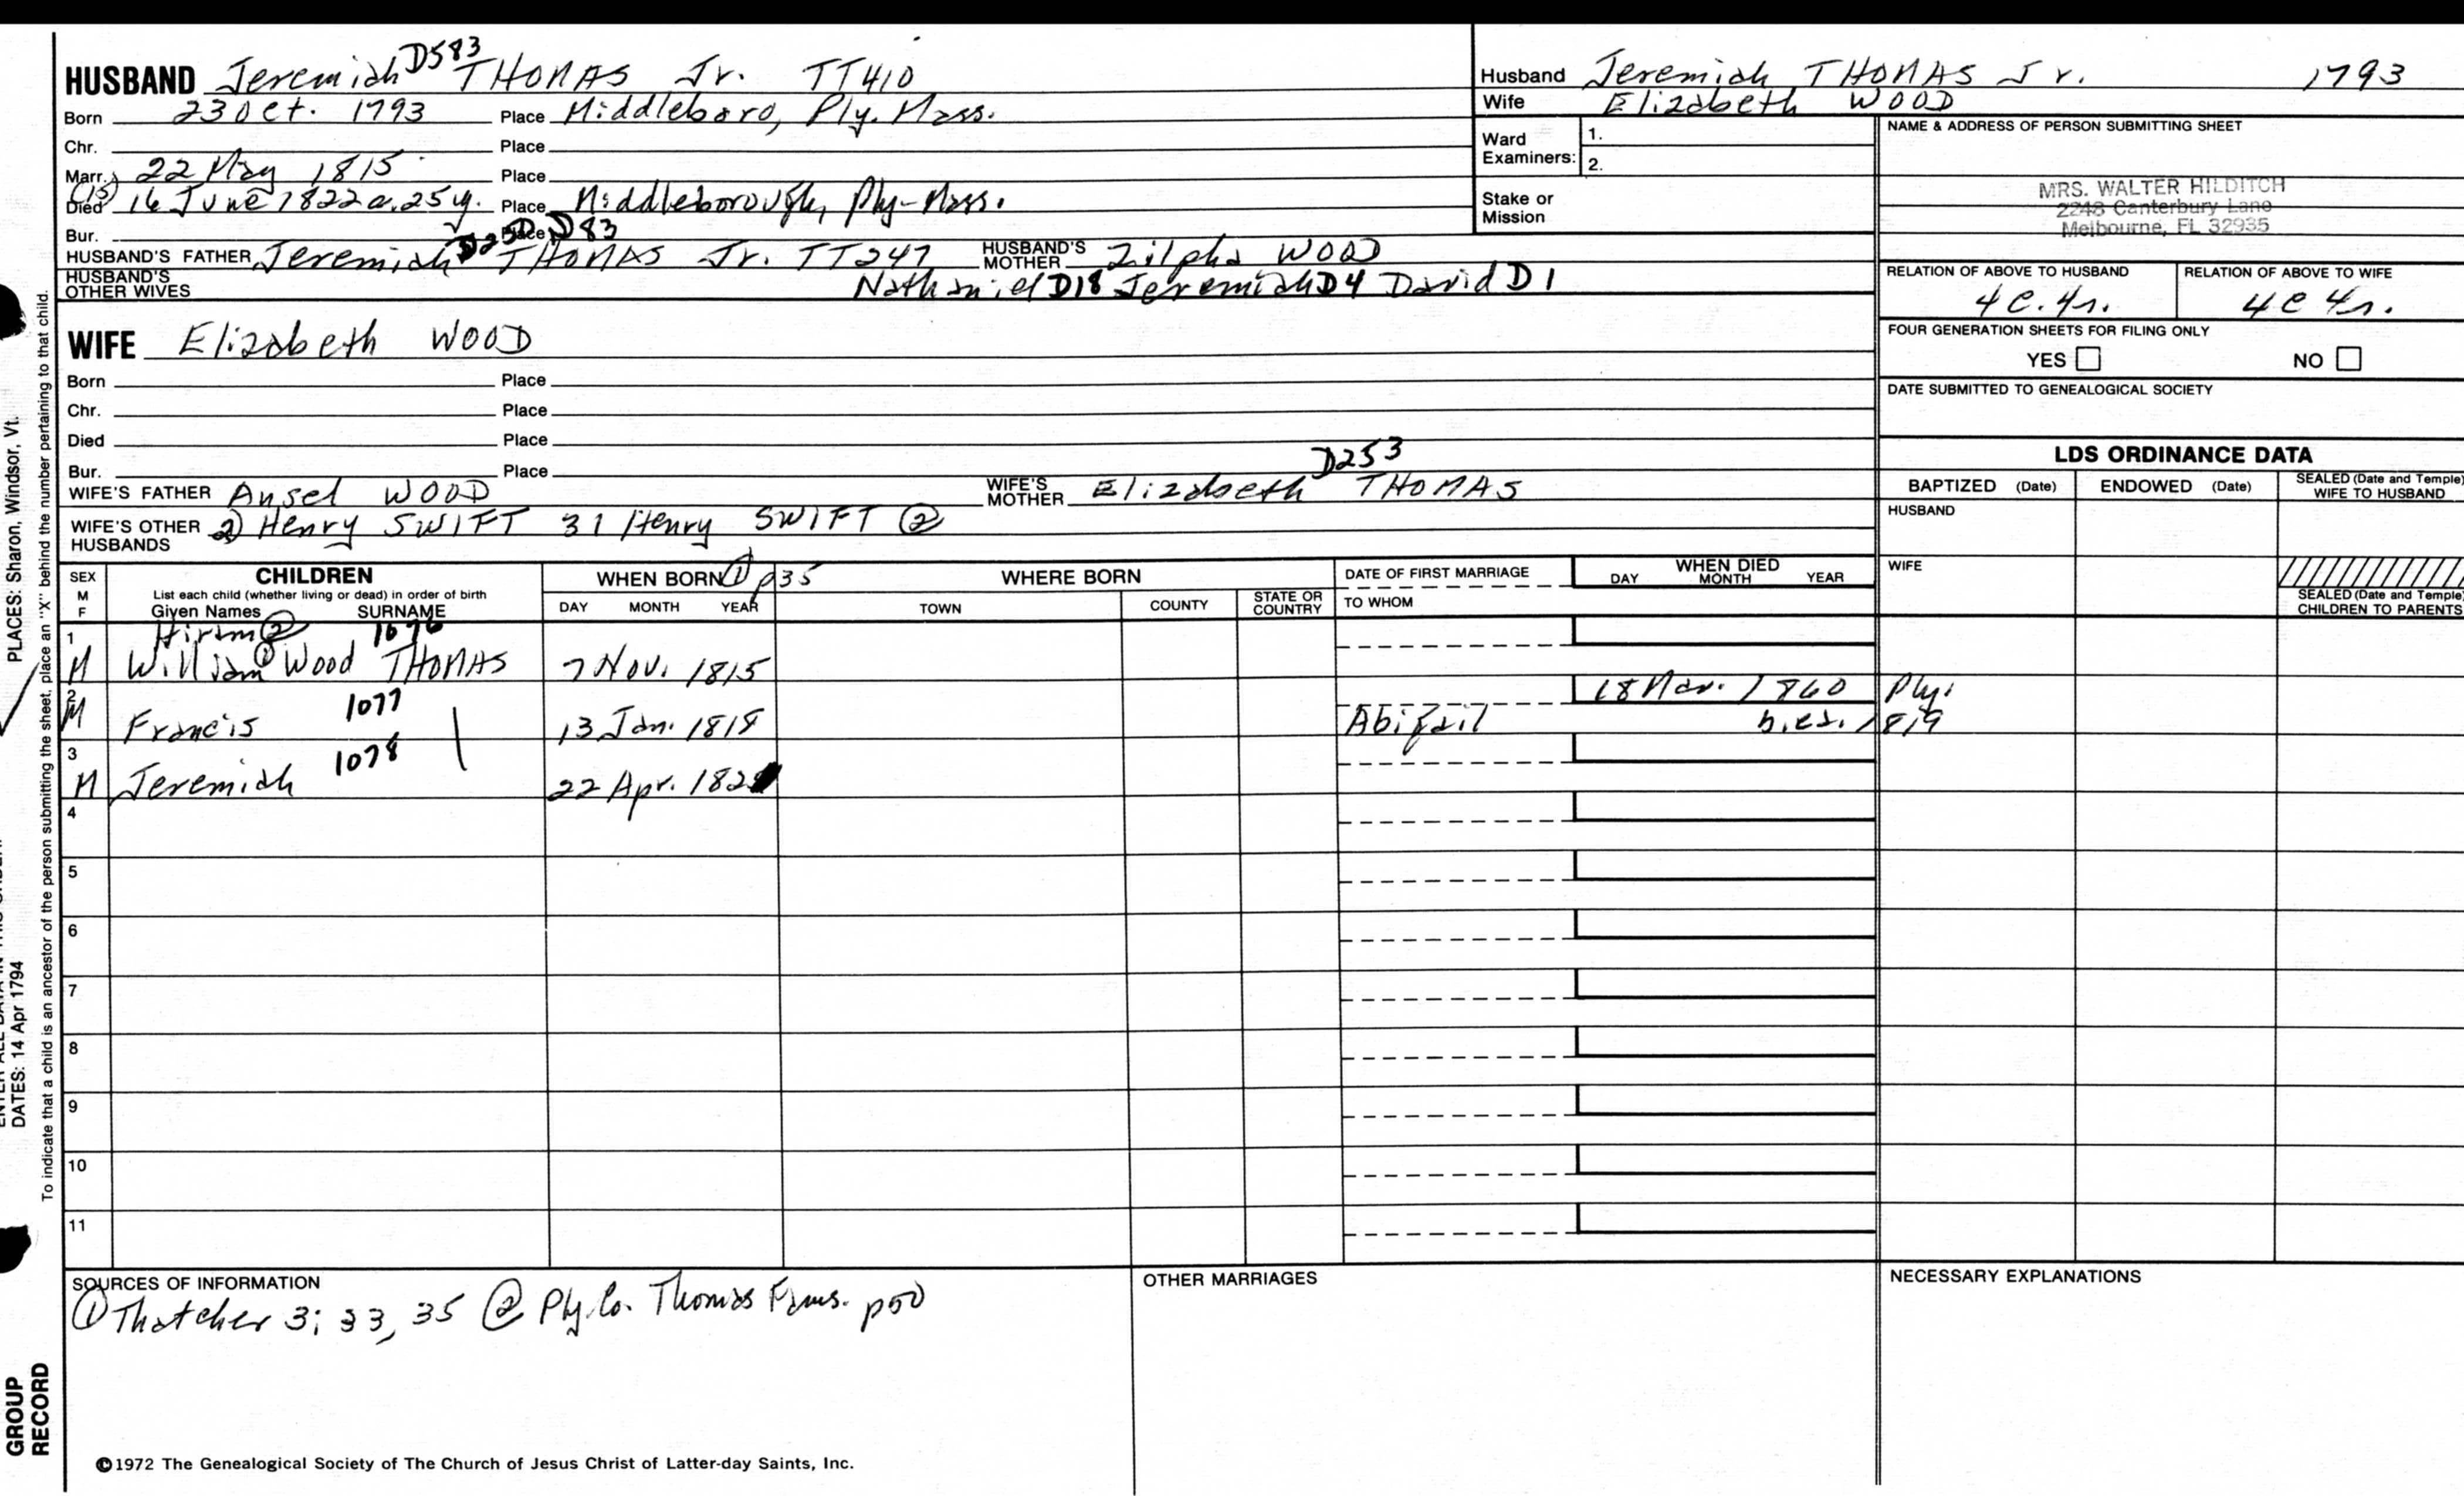 HUSBAND Jeremiah D583 THOMAS Jr. TT410
Born 23 Oct. 1793 Place Middleboro, Ply. Mass.
Chr. Place
Marr. 22 May 1815 Place
(15) Died 16 June 1822 a. 25 y. Place Middleborough, Ply-Mass.
Bur. Place
HUSBAND'S FATHER Jeremiah D250 D83 THOMAS Jr. TT247 HUSBAND'S MOTHER Zilpha WOOD
HUSBAND'S OTHER WIVES Nathaniel D18 Jeremiah D4 David D1
Husband Jeremiah THOMAS Jr. 1793
Wife Elizabeth WOOD
Ward Examiners: 1.
2.
Stake or Mission
NAME & ADDRESS OF PERSON SUBMITTING SHEET
MRS. WALTER HILDITCH
2248 Canterbury Lane
Melbourne, FL 32935
RELATION OF ABOVE TO HUSBAND RELATION OF ABOVE TO WIFE
4 c. 4r. 4 c 4r.
FOUR GENERATION SHEETS FOR FILING ONLY
YES NO
DATE SUBMITTED TO GENEALOGICAL SOCIETY
WIFE Elizabeth WOOD
Born Place
Chr. Place
Died Place
Bur. Place
D253
WIFE'S FATHER Ansel WOOD WIFE'S MOTHER Elizabeth THOMAS
WIFE'S OTHER HUSBANDS 2) Henry SWIFT 31 Henry SWIFT ②
LDS ORDINANCE DATA
BAPTIZED (Date) ENDOWED (Date) SEALED (Date and Temple) WIFE TO HUSBAND
HUSBAND
WIFE
SEALED (Date and Temple) CHILDREN TO PARENTS
SEX M F CHILDREN WHEN BORN ① p35 WHERE BORN DATE OF FIRST MARRIAGE WHEN DIED
List each child (whether living or dead) in order of birth
Given Names SURNAME DAY MONTH YEAR TOWN COUNTY STATE OR COUNTRY TO WHOM DAY MONTH YEAR
1 Hiram ② 1076
M William ① Wood THOMAS 7 Nov. 1815
2 1077 18 Mar. 1860 Ply.
M Francis 13 Jan. 1818 Abigail b. es. 1819
3 1078
M Jeremiah 22 Apr. 182
4
5
6
7
8
9
10
11
SOURCES OF INFORMATION
① Thatcher 3; 33, 35 ② Ply. Co. Thomas Fams. p50
OTHER MARRIAGES
NECESSARY EXPLANATIONS
©1972 The Genealogical Society of The Church of Jesus Christ of Latter-day Saints, Inc.
PLACES: Sharon, Windsor, Vt.
DATES: 14 Apr 1794
To indicate that a child is an ancestor of the person submitting the sheet, place an "X" behind the number pertaining to that child.
GROUP RECORD